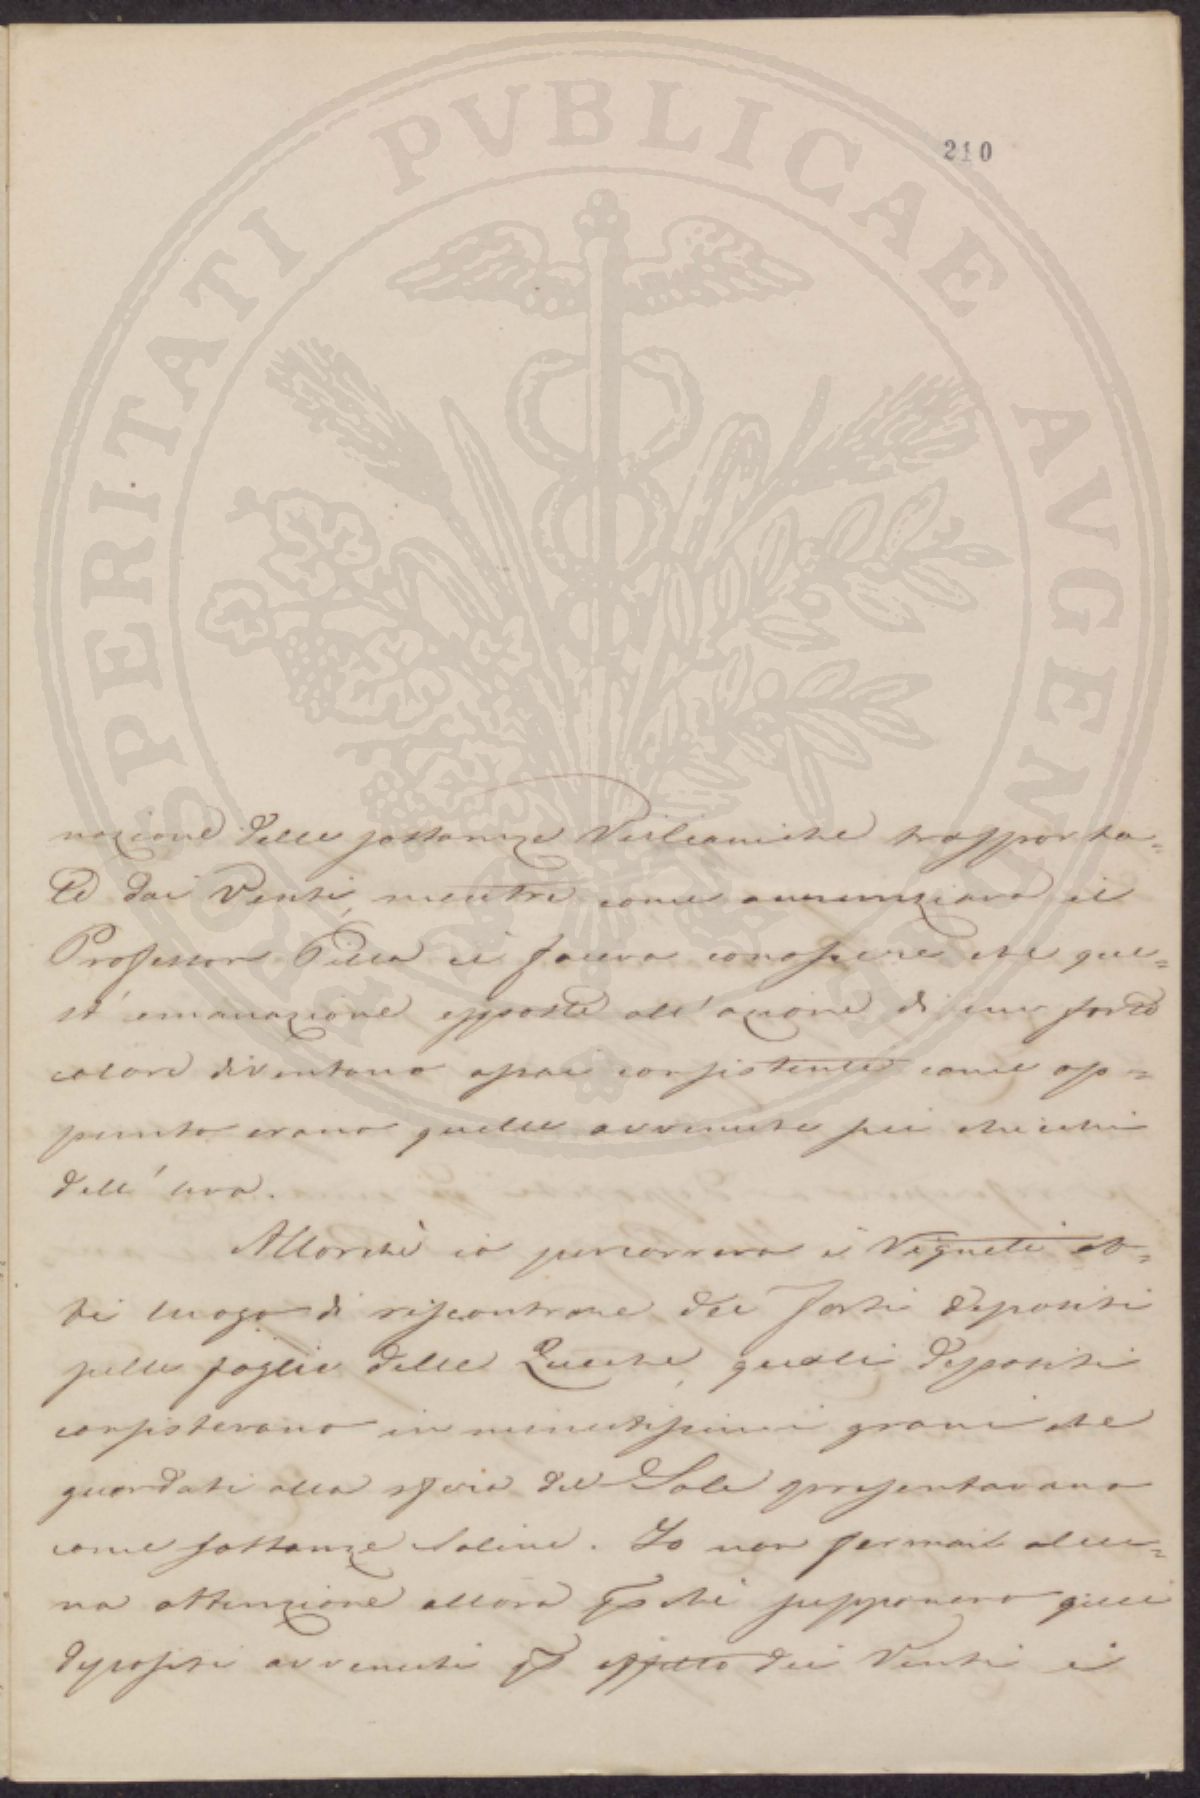 PROSPERITATI PVBLICAE AVGENDAE
210
nazione delle sostanze Vulcaniche trasporta=
te dai Venti, mentre come annunziava il
Professor Pilla ci faceva conoscere che que=
st' emanazione esposte all' azione di un forte
calore diventano assai consistente come ap=
punto erano quelle avvenute sui chicchi
dell' uva.
Allorchè io percorreva i Vigneti eb=
bi luogo di riscontrare dei forti depositi
sulle foglie delle Querche, quali depositi
consistevano in minutissimi grani che
guardati alla sfera del Sole presentavano
come sostanze saline. Io non fermai alcu=
na attenzione allora pchè supponevo quei
depositi avvenuti p effetto dei Venti i